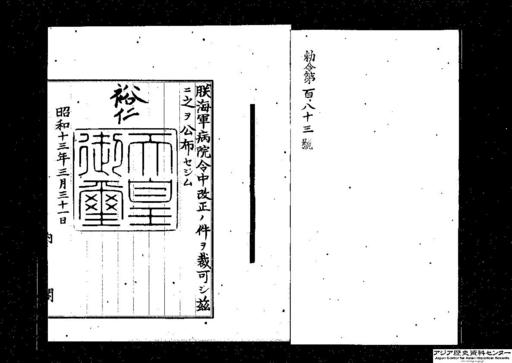 勅令第百八十三號
朕海軍病院令中改正ノ件ヲ裁可シ茲
ニ之ヲ公布セシム
裕仁
天皇
御璽
昭和十三年三月三十一日
内閣
アジア歴史資料センター
Japan Center for Asian Historical Records